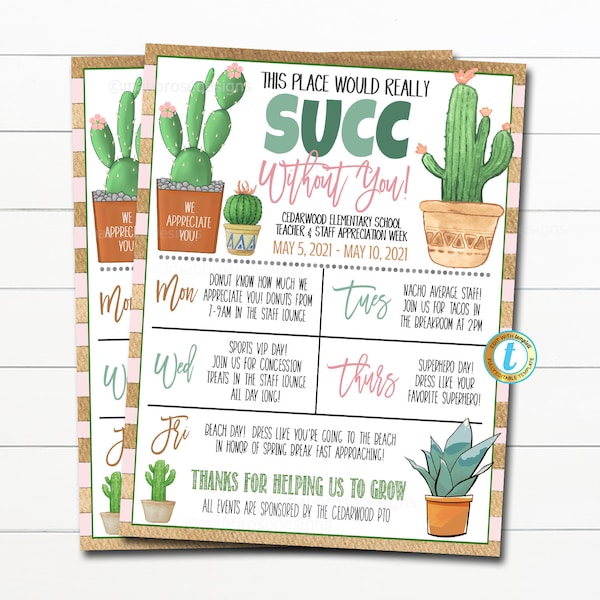 THIS PLACE WOULD REALLY
SUCC
Without You!
WE
APPRECIATE
YOU!
CEDARWOOD ELEMENTARY SCHOOL
TEACHER & STAFF APPRECIATION WEEK
MAY 5, 2021 - MAY 10, 2021
Mon
DONUT KNOW HOW MUCH WE
APPRECIATE YOU! DONUTS FROM
7-9AM IN THE STAFF LOUNGE
Tues
NACHO AVERAGE STAFF!
JOIN US FOR TACOS IN
THE BREAKROOM AT 2PM
Wed
SPORTS VIP DAY!
JOIN US FOR CONCESSION
TREATS IN THE STAFF LOUNGE
ALL DAY LONG!
Thurs
SUPERHERO DAY!
DRESS LIKE YOUR
FAVORITE SUPERHERO!
Fri
BEACH DAY! DRESS LIKE YOU'RE GOING TO THE BEACH
IN HONOR OF SPRING BREAK FAST APPROACHING!
THANKS FOR HELPING US TO GROW
ALL EVENTS ARE SPONSORED BY THE CEDARWOOD PTO
EDIT WITH templett
t